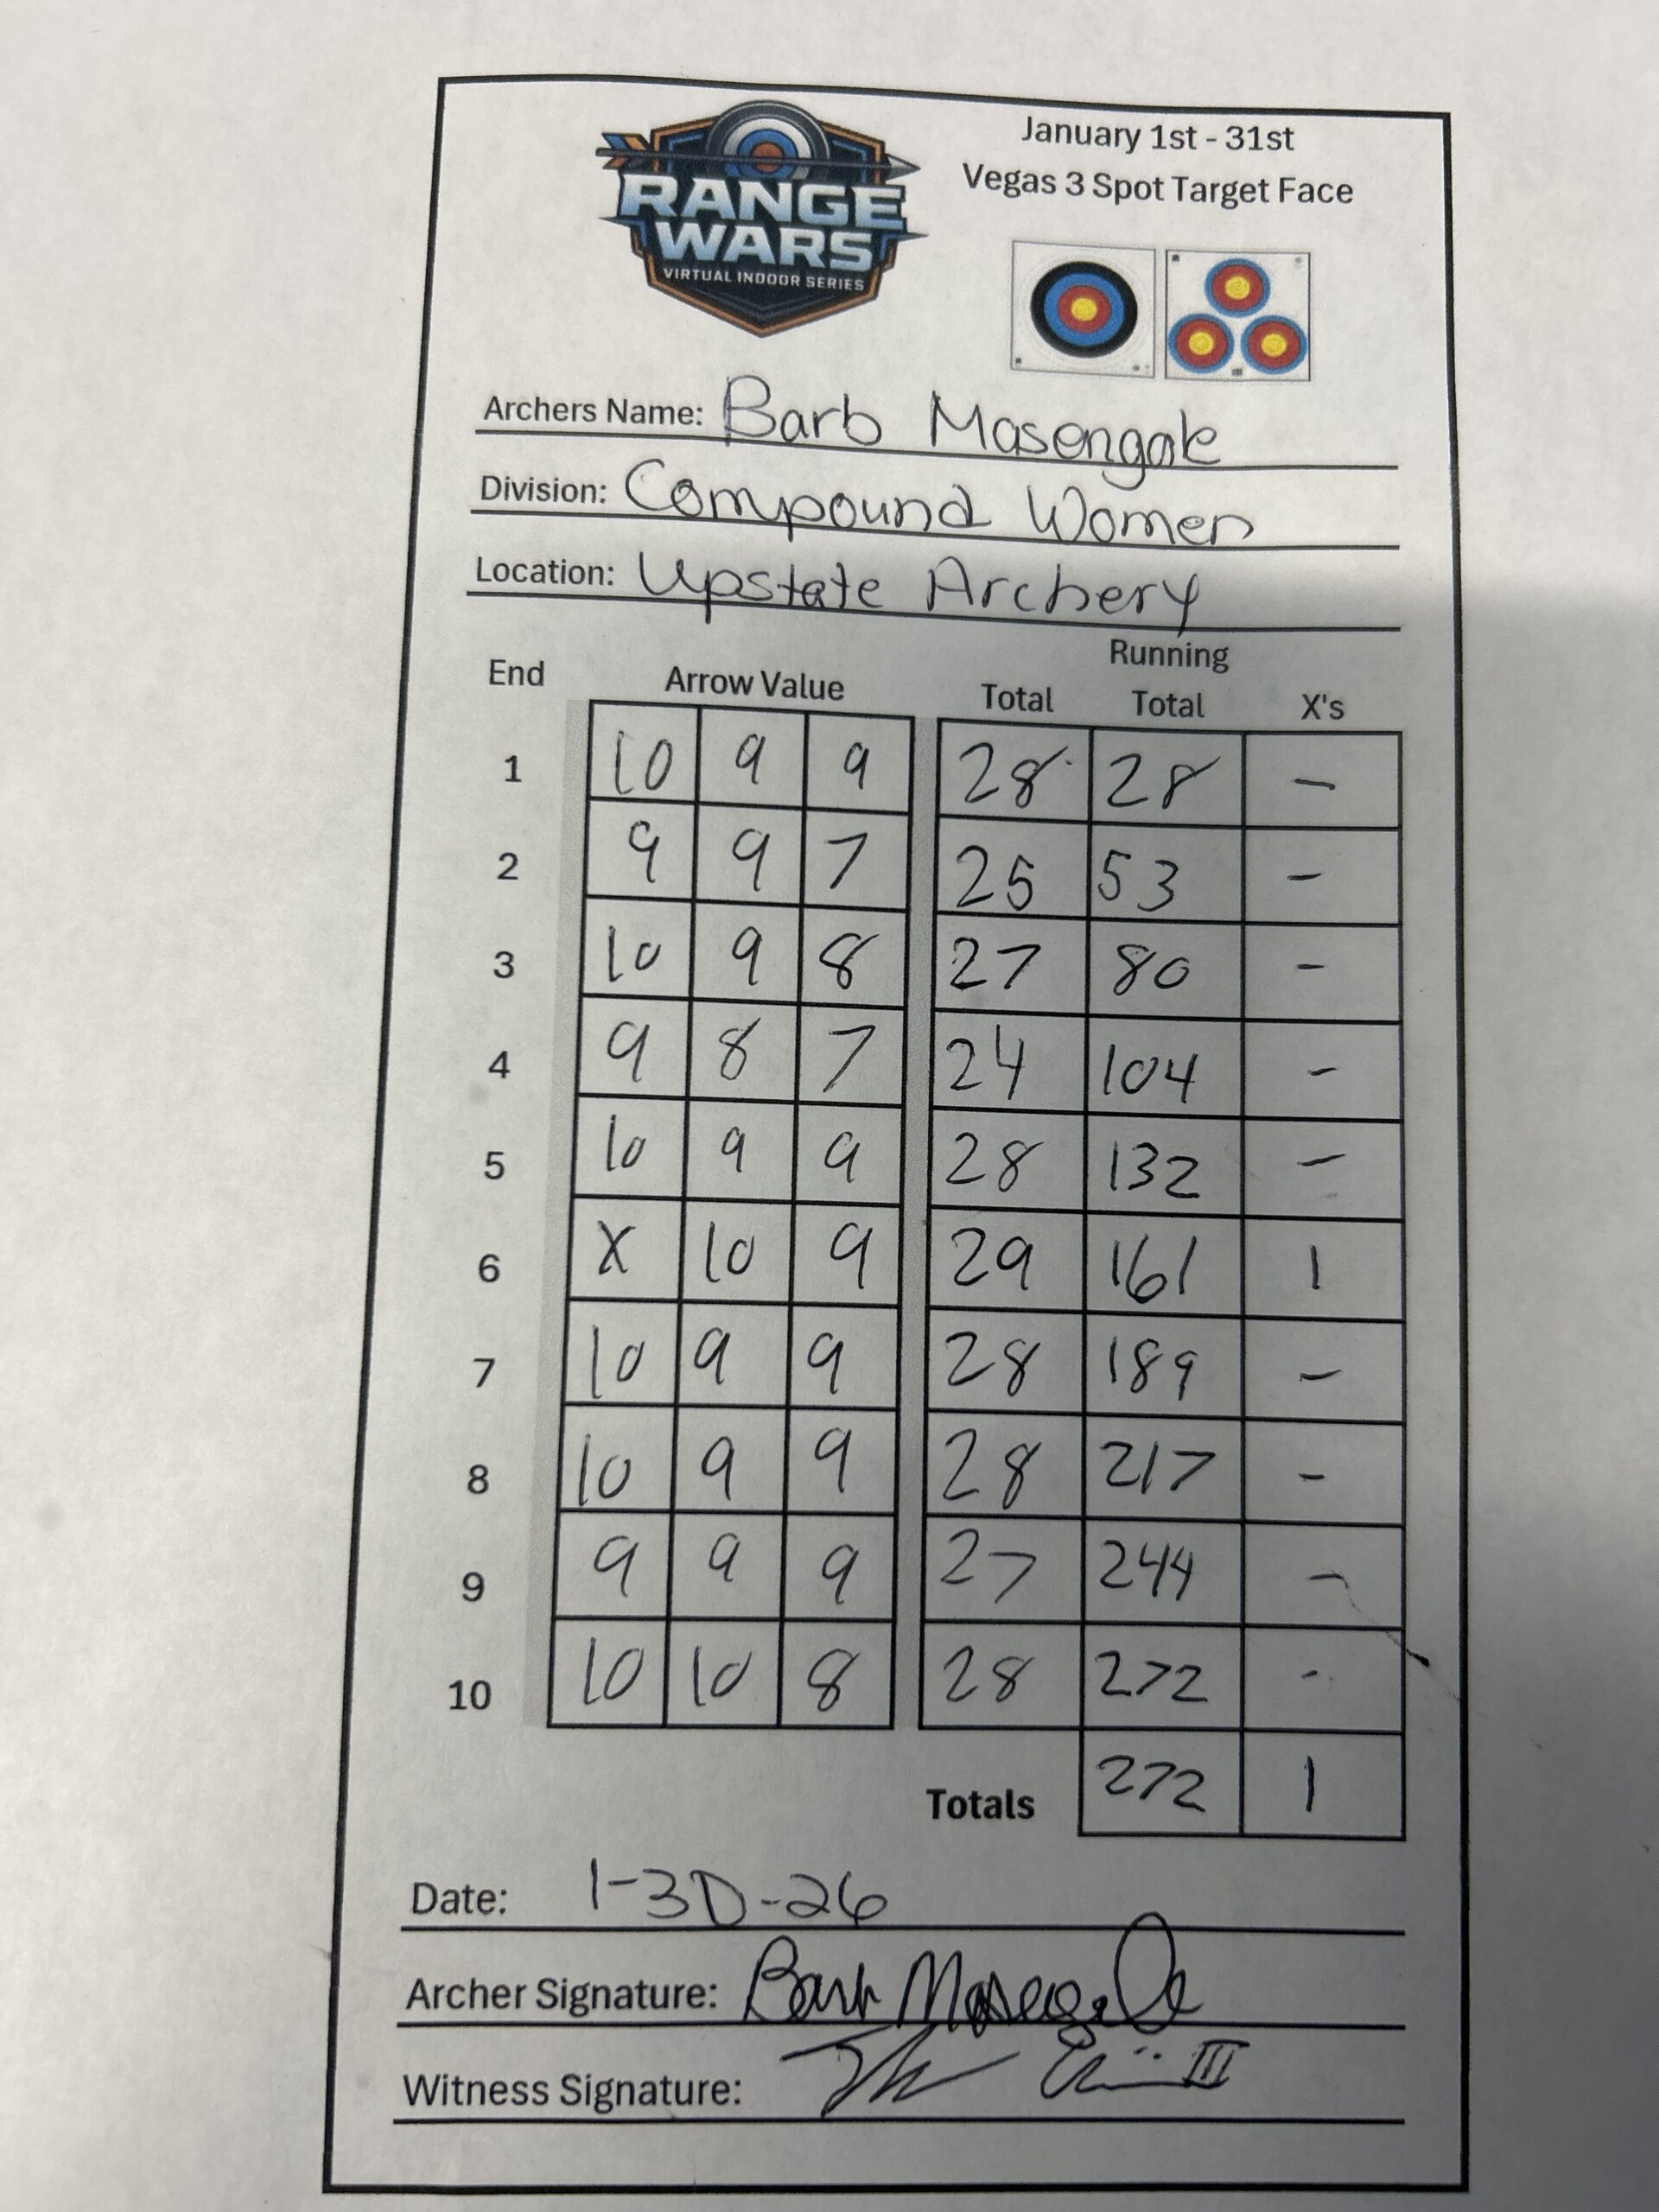 January 1st - 31st
Vegas 3 Spot Target Face
RANGE
WARS
VIRTUAL INDOOR SERIES
Archers Name: Barb Masengale
Division: Compound Women
Location: Upstate Archery
End Arrow Value Total Running Total X's
1 10 9 9 28 28 -
2 9 9 7 25 53 -
3 10 9 8 27 80 -
4 9 8 7 24 104 -
5 10 9 9 28 132 -
6 X 10 9 29 161 1
7 10 9 9 28 189 -
8 10 9 9 28 217 -
9 9 9 9 27 244 -
10 10 10 8 28 272 -
Totals 272 1
Date: 1-30-26
Archer Signature: Barb Masengale
Witness Signature: III